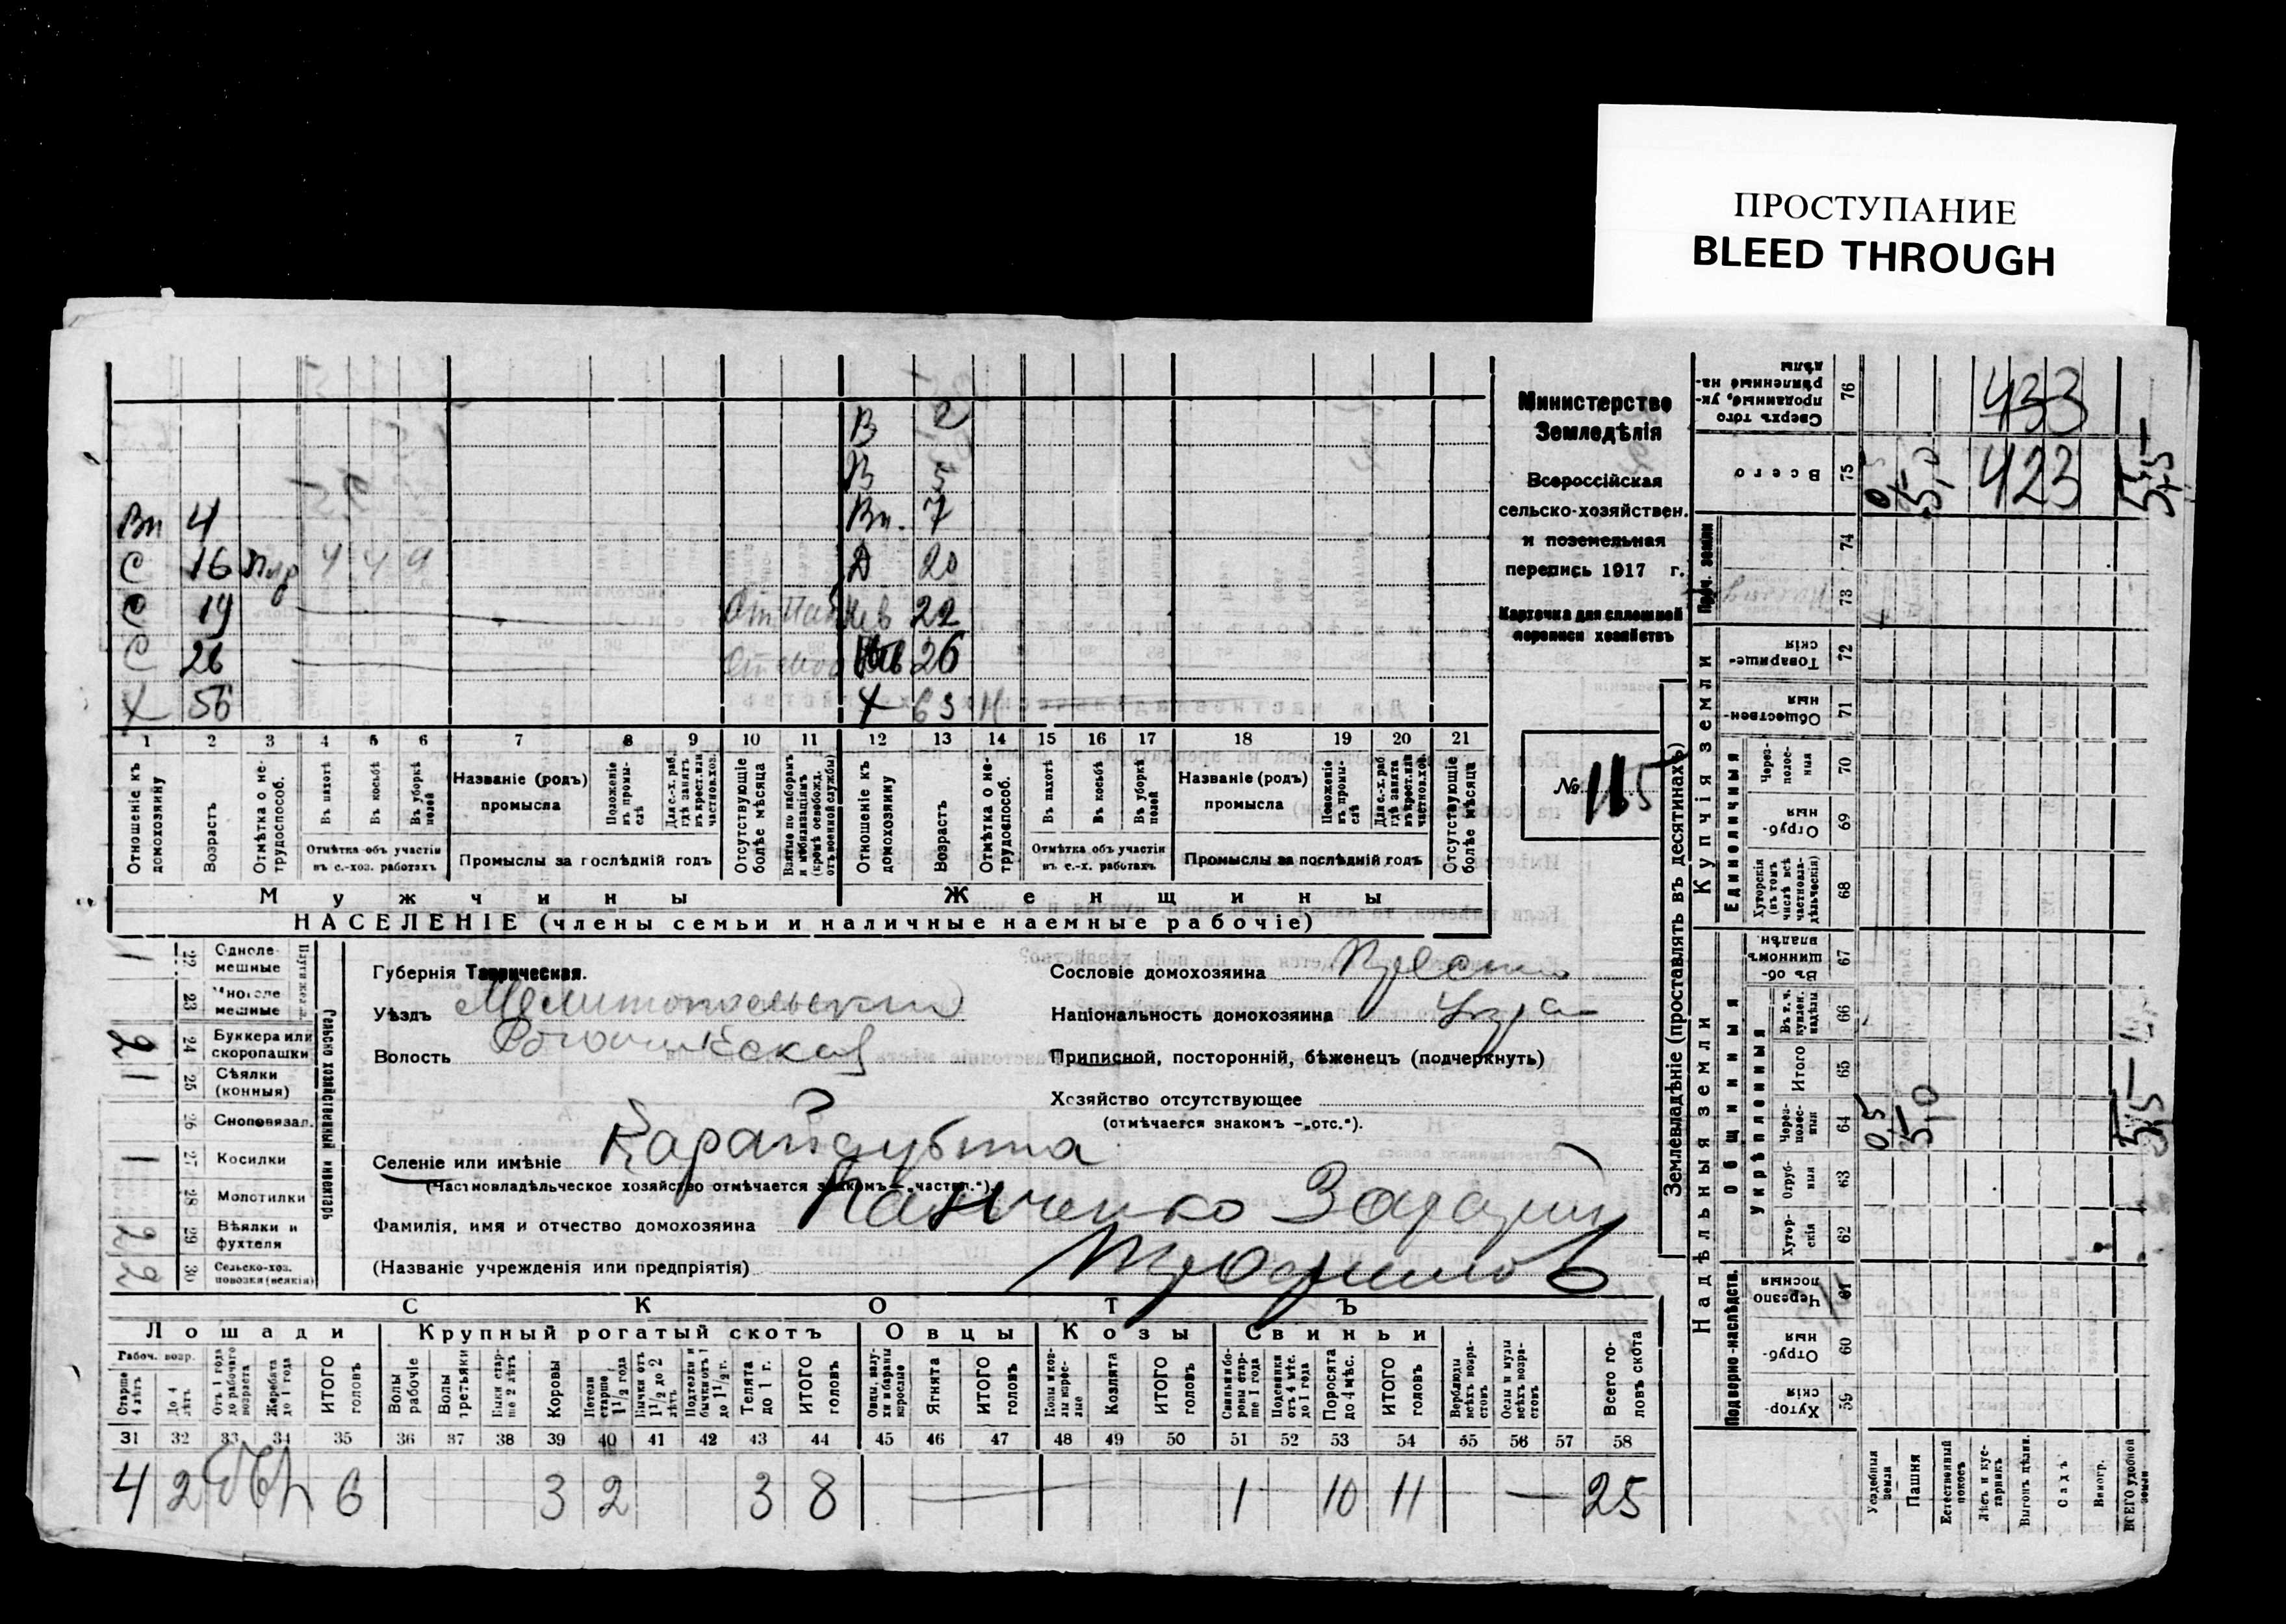 ПРОСТУПАНИЕ
BLEED THROUGH
В 2
В 5
Вн 4 Вн. 7
С 16 4 4 9 Д 20
С 19 От Нев 22
С 26 От Нев 26
Х 56 Х 63 Н
1 2 3 4 5 6 7 8 9 10 11 12 13 14 15 16 17 18 19 20 21
Отношеніе къ домохозяину
Возрастъ
Отмѣтка о не-трудоспособ.
Въ пахотѣ
Въ косьбѣ
Въ уборкѣ полей
Отмѣтка объ участіи въ с.-хоз. работахъ
Названіе (родъ) промысла
Положеніе въ промы-слѣ
Для с.-х. раб. гдѣ занятъ въ крест. или частн. хоз.
Промыслы за послѣдній годъ
Отсутствующіе болѣе мѣсяца
Взятые по наборамъ и мобилизаціямъ (кромѣ освобожд. отъ военной службы)
Отношеніе къ домохозяину
Возрастъ
Отмѣтка о не-трудоспособ.
Въ пахотѣ
Въ косьбѣ
Въ уборкѣ полей
Отмѣтка объ участіи въ с.-х. работахъ
Названіе (родъ) промысла
Положеніе въ промы-слѣ
Для с.-х. раб. гдѣ занята въ крест. или частн. хоз.
Промыслы за послѣдній годъ
Отсутствующіе болѣе мѣсяца
Мужчины Женщины
НАСЕЛЕНІЕ (члены семьи и наличные наемные рабочіе)
Министерство
Земледѣлія
Всероссійская
сельско-хозяйствен.
и поземельная
перепись 1917 г.
Карточка для сплошной
переписи хозяйствъ
№ 115
1 22 Одноле-мешные
23 Многоле мешные
2 24 Буккера или скоропашки
1 25 Сѣялки (конныя)
26 Сноповязал.
1 27 Косилки
28 Молотилки
2 29 Вѣялки и фухтеля
2 30 Сельско-хоз. повозки (всякія)
Сельско хозяйственный инвентарь
Губернія Таврическая.
Уѣздъ Мелитопольскій
Волость
Сословіе домохозяина
Національность домохозяина Укра
Приписной, посторонній, бѣженецъ (подчеркнуть)
Хозяйство отсутствующее
(отмѣчается знакомъ —„отс.“).
Селеніе или имѣніе Карайдубина
(Частновладѣльческое хозяйство отмѣчается знакомъ —„частвл.“)
Фамилія, имя и отчество домохозяина Панченко
(Названіе учрежденія или предпріятія)
СКОТЪ
Лошади Крупный рогатый скотъ Овцы Козы Свиньи
Рабоч. возр.
Старше 4 лѣтъ
До 4 лѣтъ
Отъ 1 года до рабочаго возраста
Жеребята до 1 года
ИТОГО головъ
Волы рабочіе
Волы третьяки
Быки стар-ше 2 лѣтъ
Коровы
Нетели старше 1 1/2 года
Бычки отъ 1 1/2 до 2 лѣтъ
Подтелки и бычки отъ 1 до 1 1/2 г.
Телята до 1 г.
ИТОГО головъ
Овцы, валу-хи и бараны взрослые
Ягнята
ИТОГО головъ
Козы и коз-лы взрос-лые
Козлята
ИТОГО головъ
Свиньи и бо-ровы стар-ше 1 года
Подсвинки отъ 4 мѣс. до 1 года
Поросята до 4 мѣс.
ИТОГО головъ
Верблюды всѣхъ возра-стовъ
Ослы и мулы всѣхъ возра-стовъ
Всего го-ловъ скота
31 32 33 34 35 36 37 38 39 40 41 42 43 44 45 46 47 48 49 50 51 52 53 54 55 56 57 58
4 2 6 3 2 3 8 1 10 11 25
Землевладѣніе (проставлять въ десятинахъ)
Надѣльныя земли Купчія земли
Подворно-наслѣдств.
Общинныя
Укрѣпленныя
Единоличныя
Прм. земли
Сверхъ того проданные, ук-рѣпленные на-дѣлы 76 433
Всего 75 0,5 5,0 423 5,5
74
73
Товарище-скія 72
Обществен-ныя 71
Через-полос-ныя 70
Отруб-ныя 69
Хуторскія (въ томъ числѣ всѣ частновла-дѣльческія) 68
Въ об-щинномъ владѣн. 67
Въ т. ч. куплен. надѣлы 66
Итого 65
Через-полос-ныя 64 0,5 5,0
Отруб-ныя 63
Хутор-скія 62
Черезпо лосныя 61
Отруб-ныя 60
Хутор-скія 59
Усадебныя земли
Пашня
Естественный покосъ
Лѣсъ и кус-тарникъ
Выгонъ цѣлин.
Садъ
Виногр.
ВСЕГО удобной земли